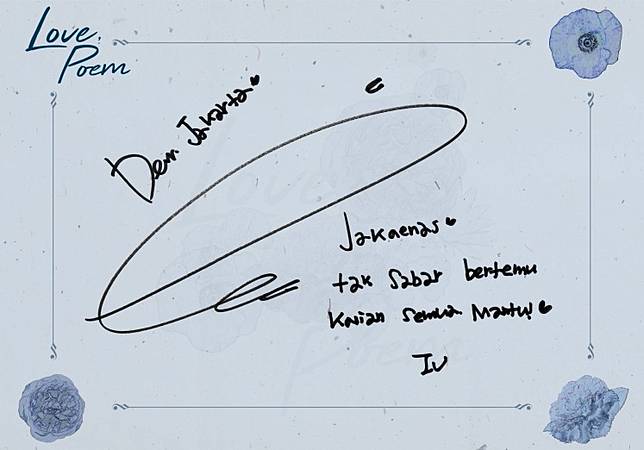 Love,
Poem
Dear. Jakarta♥
Jakaenas♥
tak sabar bertemu
kalian semua. Mantu!♥
IU
Love,
Poem